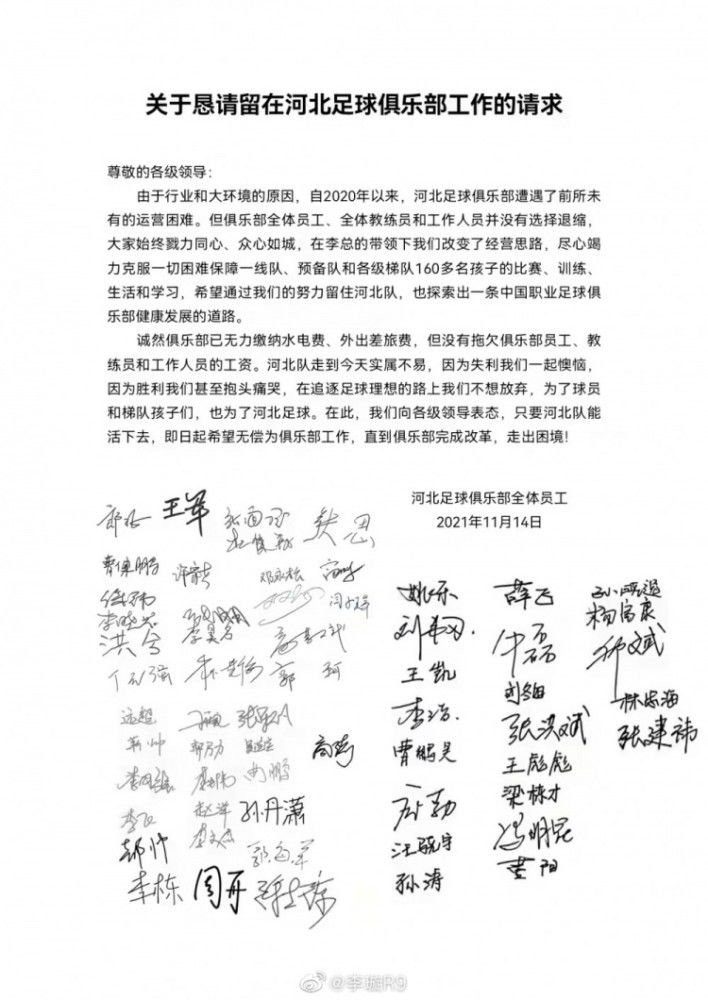 关于恳请留在河北足球俱乐部工作的请求
尊敬的各级领导：
由于行业和大环境的原因，自2020年以来，河北足球俱乐部遭遇了前所未
有的运营困难。但俱乐部全体员工、全体教练员和工作人员并没有选择退缩，
大家始终戮力同心、众心如城，在李总的带领下我们改变了经营思路，尽心竭
力克服一切困难保障一线队、预备队和各级梯队160多名孩子的比赛、训练、
生活和学习，希望通过我们的努力留住河北队，也探索出一条中国职业足球俱
乐部健康发展的道路。
诚然俱乐部已无力缴纳水电费、外出差旅费，但没有拖欠俱乐部员工、教
练员和工作人员的工资。河北队走到今天实属不易，因为失利我们一起懊恼，
因为胜利我们甚至抱头痛哭，在追逐足球理想的路上我们不想放弃，为了球员
和梯队孩子们，也为了河北足球。在此，我们向各级领导表态，只要河北队能
活下去，即日起希望无偿为俱乐部工作，直到俱乐部完成改革，走出困境！
河北足球俱乐部全体员工
2021年11月14日
王军
曹保鹏
洪兮
郭珂
远超
孙丹潇
李栋
周开
姚乐
王凯
李浩
曹鹏昊
孙涛
薛飞
张洪斌
王彪彪
梁栋才
冯明昆
杨富康
林忠海
张建祎
@李璇R9